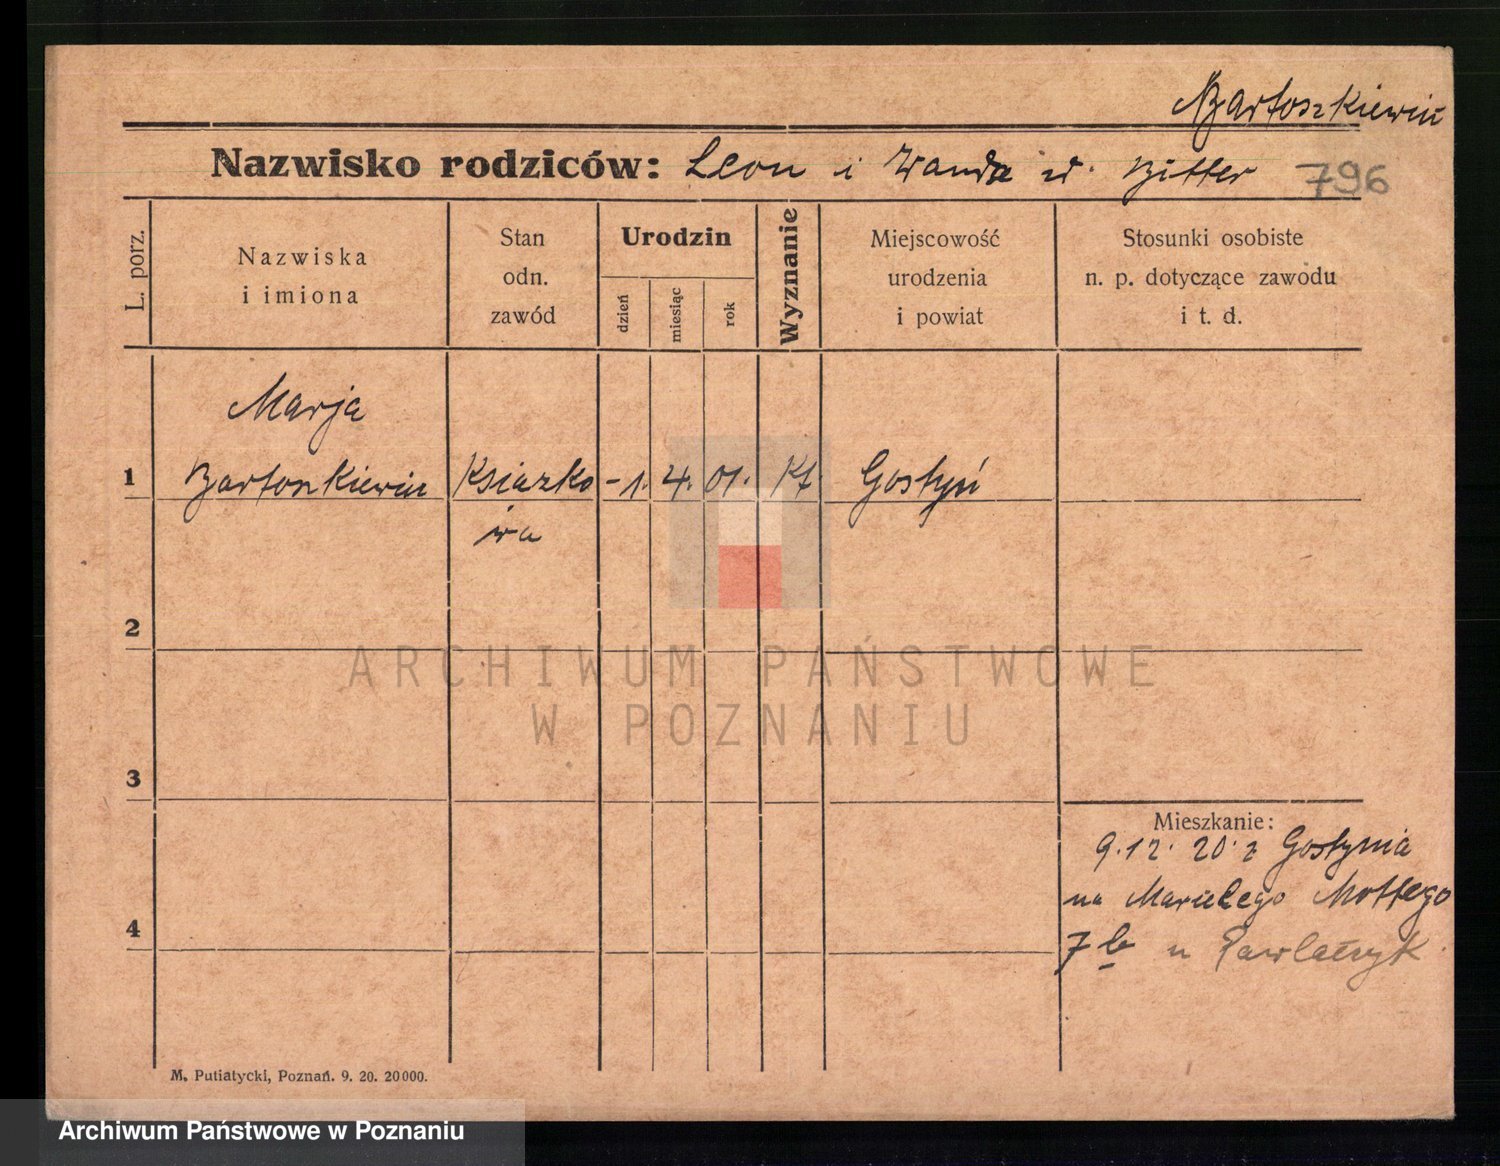 Bartoszkiewicz
Nazwisko rodziców: Leon i Wanda z d. Bitter 796
L. porz.
Nazwiska
i imiona
Stan
odn.
zawód
Urodzin
dzień
miesiąc
rok
Wyznanie
Miejscowość
urodzenia
i powiat
Stosunki osobiste
n. p. dotyczące zawodu
i t. d.
Marja
1 Bartoszkiewicz Ksiazko -1. 4. 01. Kt Gostyń
wa
2
3
4
Mieszkanie:
9.12. 20. z Gostynia
na Marcelego Mottego
7 b u
M. Putiatycki, Poznań. 9. 20. 20000.
ARCHIWUM PAŃSTWOWE
W POZNANIU
Archiwum Państwowe w Poznaniu